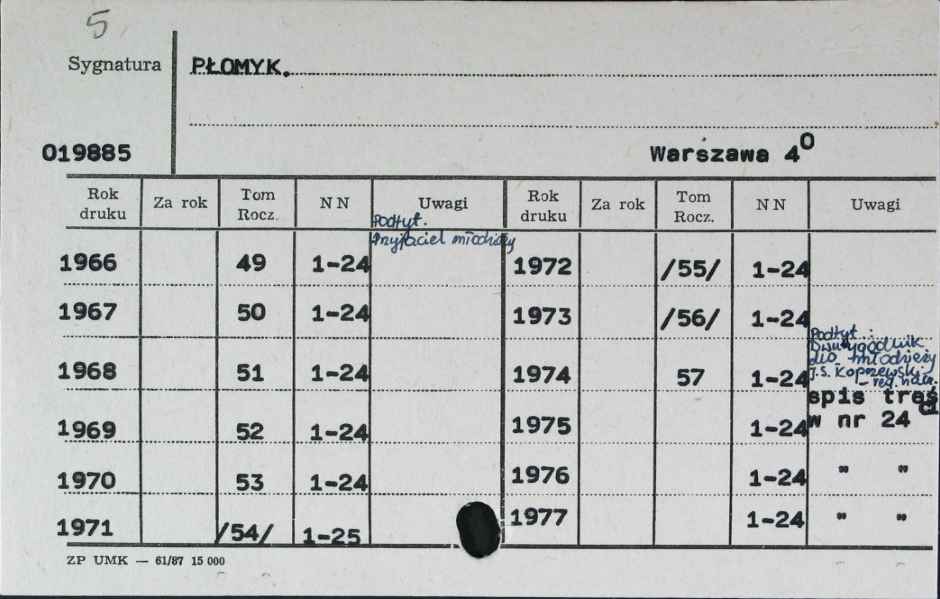 5
Sygnatura PŁOMYK.
019885 Warszawa 4⁰
Rok druku Za rok Tom Rocz. N N Uwagi Rok druku Za rok Tom Rocz. N N Uwagi
Podtyt.
Przyjaciel młodzieży
1966 49 1-24 1972 /55/ 1-24
1967 50 1-24 1973 /56/ 1-24
Podtyt.:
Dwutygodnik
dla młodzieży
1968 51 1-24 1974 57 1-24 J.S. Kopczewski
- red. nacz.
spis treści
1969 52 1-24 1975 1-24 w nr 24
1970 53 1-24 1976 1-24 " "
1971 /54/ 1-25 1977 1-24 " "
ZP UMK — 61/87 15 000